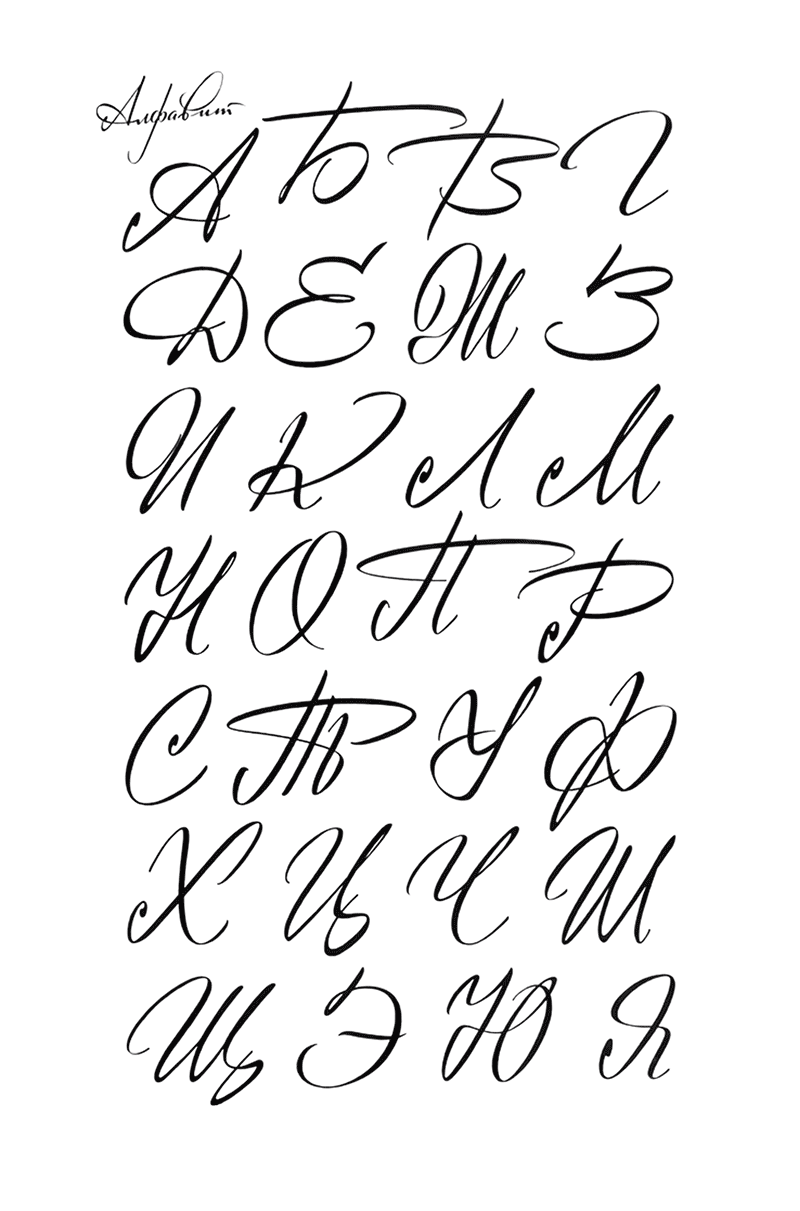 Алфавит
А Б В Г
Д Е Ж З
И К Л М
Н О П Р
С Т У Ф
Х Ц Ч Ш
Щ Э Ю Я